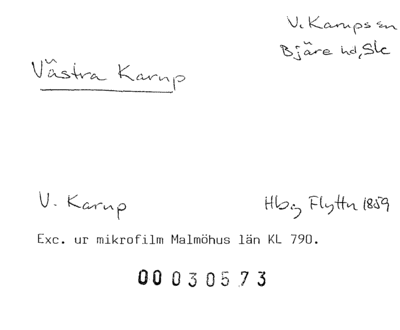 V. Karups sn
Bjäre hd, Sk
Västra Karup
V. Karup
Hbg Flyttn 1859
Exc. ur mikrofilm Malmöhus län KL 790.
00030573